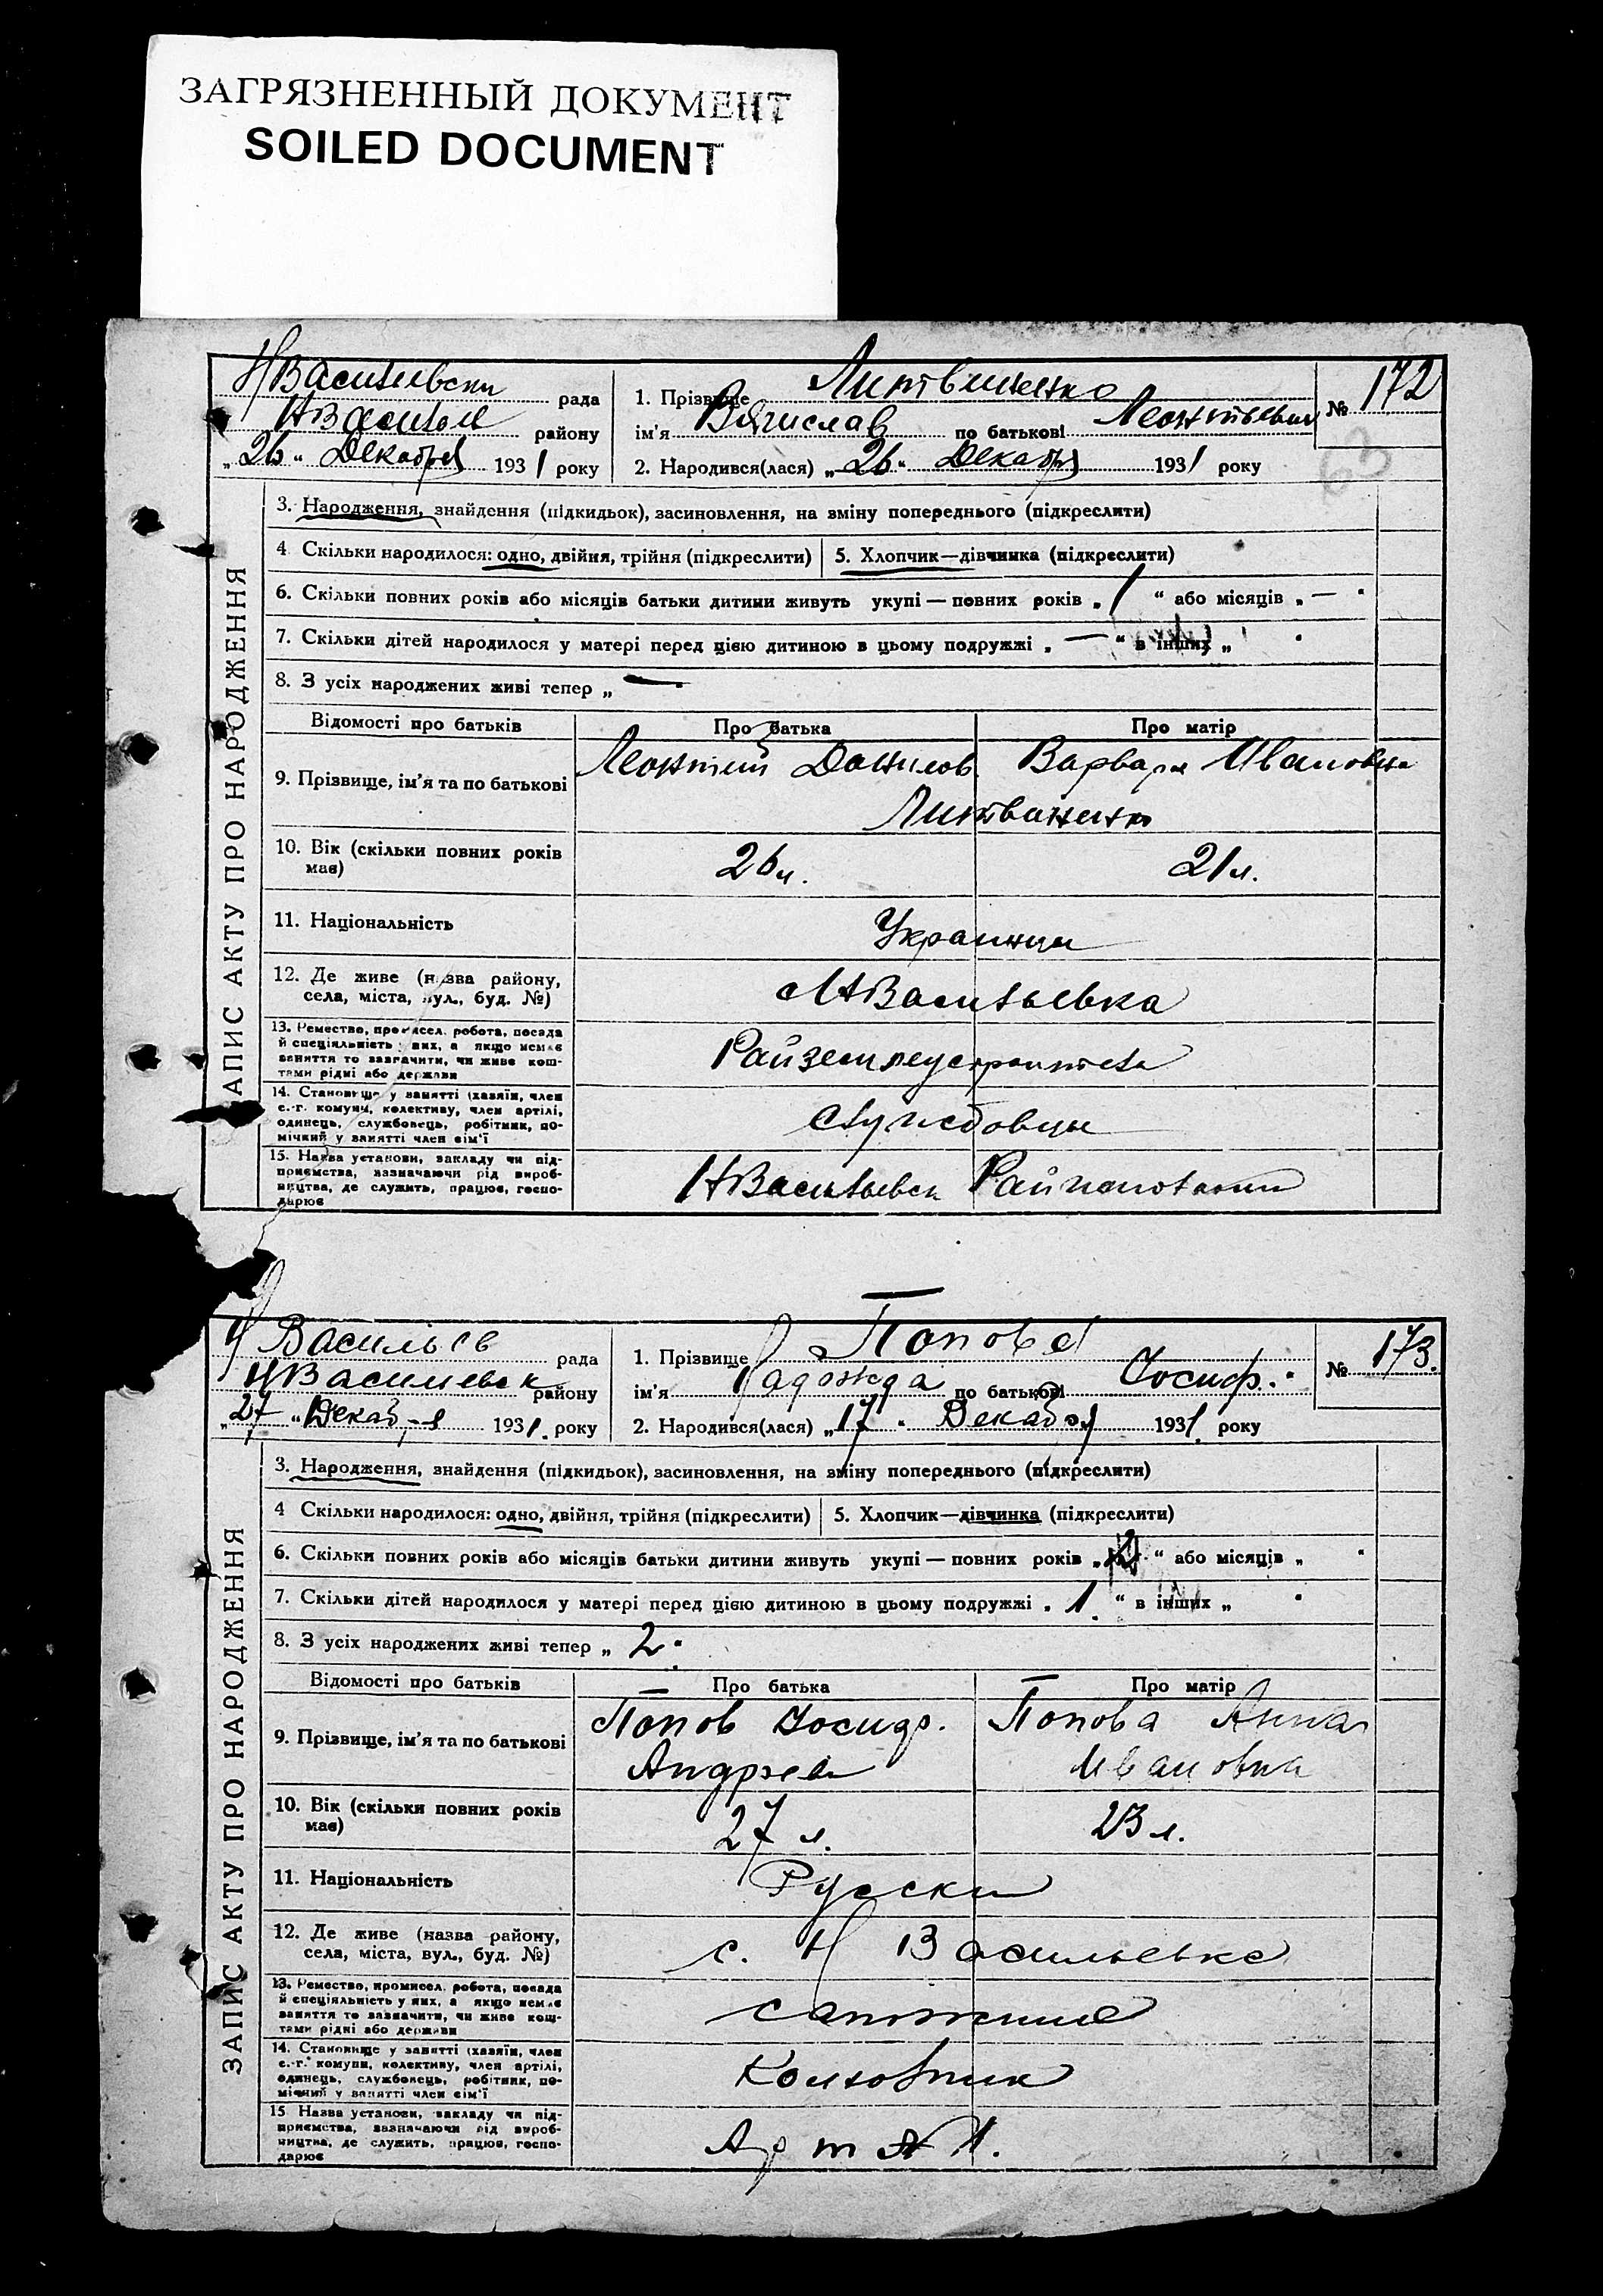 ЗАГРЯЗНЕННЫЙ ДОКУМЕНТ
SOILED DOCUMENT
рада
району
„26“ Декабря 1931 року
1. Прізвище Литвиненко
ім'я Вячислав по батькові Леонтьевич
2. Народився(лася) „26“ Декабря 1931 року
№ 172
63
АПИС АКТУ ПРО НАРОДЖЕННЯ
3. Народження, знайдення (підкидьок), засиновлення, на вміну попереднього (підкреслити)
4 Скільки народилося: одно, двійня, трійня (підкреслити)
5. Хлопчик—дівчинка (підкреслити)
6. Скільки повних років або місяців батьки дитини живуть укупі — повних років „1“ або місяців „—
7. Скільки дітей народилося у матері перед цією дитиною в цьому подружжі „—“ в інших „
8. З усіх народжених живі тепер „—
Відомості про батьків
Про батька
Про матір
9. Прізвище, ім'я та по батькові
Леонтий Данилов
Варвара Ивановна
Литвиненко
10. Вік (скільки повних років
має)
26 л.
21 л.
11. Національність
Украинцы
12. Де живе (назва району,
села, міста, вул., буд. №)
НВасильевка
13. Ремество, промисел, робота, посада
й спеціяльність у них, а якщо немає
заняття то зазначити, чи живе кош-
тами рідні або держави
14. Становище у занятті (хазяїн, член
с.-г. комуни, колективу, член артілі,
одинець, службовець, робітник, по-
мічний у занятті член сім'ї
Службовцы
15. Назва установи, закладу чи під-
приємства, зазначаючи рід вироб-
ництва, де служить, працює, госпо-
дарює
НВасильевск
Н Васильев рада
НВасилевск району
„27“ Декаб-я 1931. року
1. Прізвище Попова
ім'я по батькові Иосиф.
2. Народився(лася) „17“ Декабря 1931. року
№ 173.
ЗАПИС АКТУ ПРО НАРОДЖЕННЯ
3. Народження, знайдення (підкидьок), засиновлення, на вміну попереднього (підкреслити)
4 Скільки народилося: одно, двійня, трійня (підкреслити)
5. Хлопчик—дівчинка (підкреслити)
6. Скільки повних років або місяців батьки дитини живуть укупі — повних років „ “ або місяців „
7. Скільки дітей народилося у матері перед цією дитиною в цьому подружжі „1.“ в інших „
8. З усіх народжених живі тепер „2“
Відомості про батьків
Про батька
Про матір
9. Прізвище, ім'я та по батькові
Попов Иосиф.
Попова Анна
Андреев
Ивановна
10. Вік (скільки повних років
має)
27 л.
23 л.
11. Національність
Русски
12. Де живе (назва району,
села, міста, вул., буд. №)
с. Н Васильевке
13. Ремество, промисел, робота, посада
й спеціяльність у них, а якщо немає
заняття то зазначити, чи живе кош-
тами рідні або держави
сапожник
14. Становище у занятті (хазяїн, член
с.-г. комуни, колективу, член артілі,
одинець, службовець, робітник, по-
мічний у занятті член сім'ї
15 Назва установи, закладу чи під-
приємства, зазначаючи рід вироб-
ництва, де служить, працює, госпо-
дарює